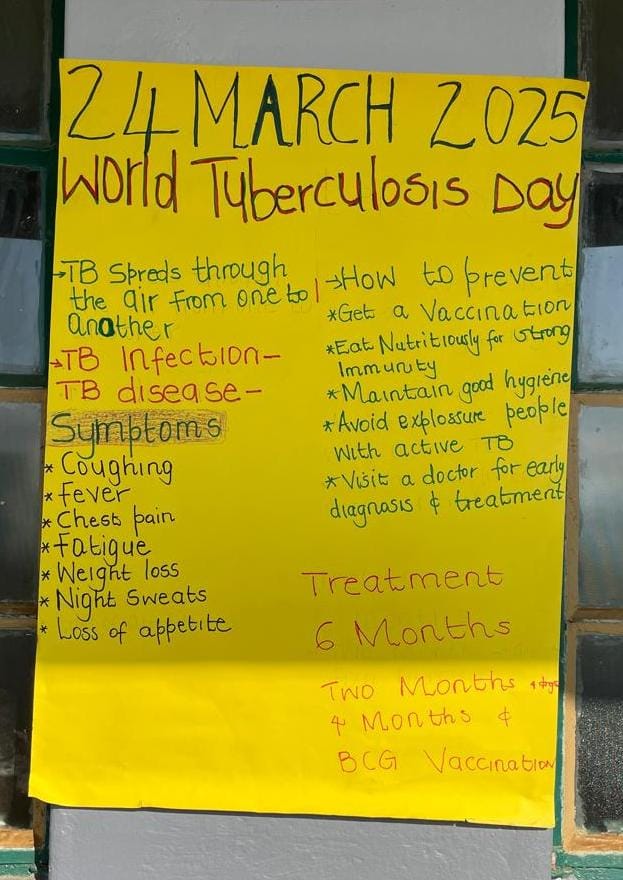 24 MARCH 2025
World Tuberculosis Day
→TB Spreds through
the air from one to
another
→TB Infection-
TB disease-
Symptoms
* Coughing
* Fever
* Chest pain
* Fatigue
* Weight loss
* Night Sweats
* Loss of appetite
→How to prevent
*Get a Vaccination
*Eat Nutritiously for strong
Immunity
*Maintain good hygiene
*Avoid explossure people
With active TB
*Visit a doctor for early
diagnosis & treatment
Treatment
6 Months
Two Months
4 Months &
BCG Vaccination